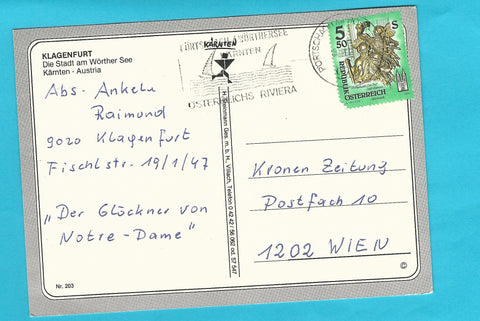 KLAGENFURT
Die Stadt am Wörther See
Kärnten - Austria
Abs. Ankele
Raimond
9020 Klagenfurt
Fischlstr. 19/1/47
"Der Glöckner von
Notre-Dame"
Nr. 203
KÄRNTEN
PÖRTSCHACH WÖRTHERSEE
KÄRNTEN
ÖSTERREICHS RIVIERA
PÖRTSCHA
5 S
50
REPUBLIK
ÖSTERREICH
Ges. m. b. H., Villach, Telefon 0 42 42 /
Kronen Zeitung
Postfach 10
1202 WIEN
©